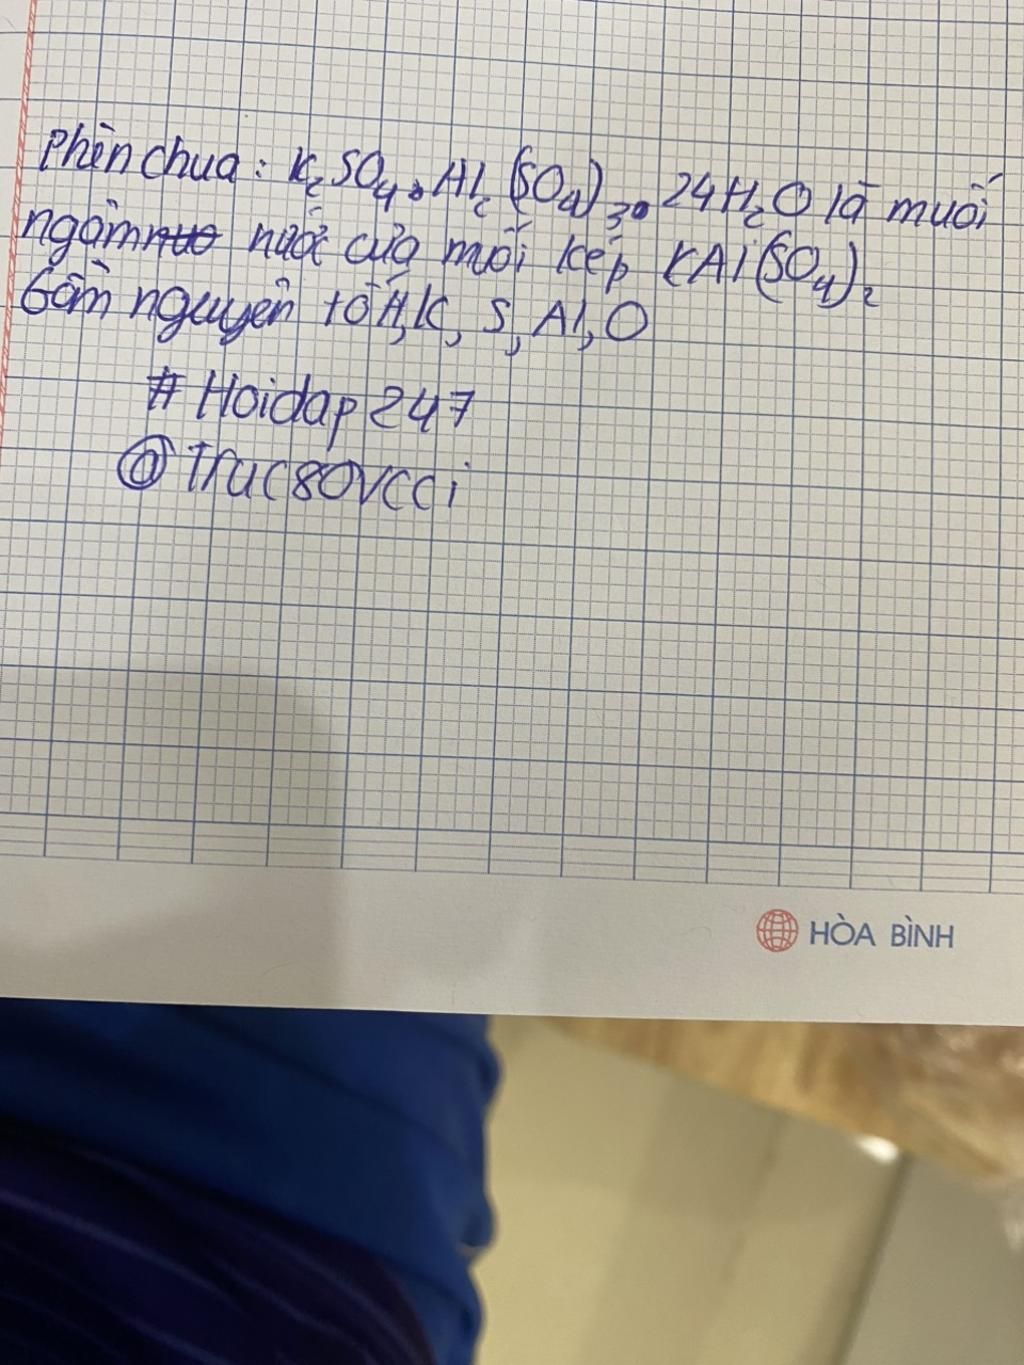 Phèn chua: K₂SO₄.Al₂(SO₄)₃.24H₂O là muối
ngậm nước của muối kép KAl(SO₄)₂
Gồm nguyên tố H, K, S, Al, O
# Hoidap247
@Truc80vcci
HÒA BÌNH